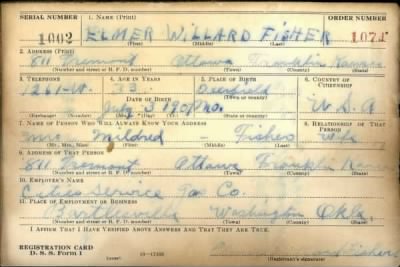 SERIAL NUMBER 1. NAME (Print) ORDER NUMBER
1002 ELMER WILLARD FISHER 1071
(First) (Middle) (Last)
2. ADDRESS (Print)
811 Fremont Ottawa Franklin Kansas
(Number and street or R. F. D. number) (Town) (County) (State)
3. TELEPHONE 4. AGE IN YEARS 5. PLACE OF BIRTH 6. COUNTRY OF CITIZENSHIP
1261-W. 33
DATE OF BIRTH (Town or county)
July 3 1907 Mo. U. S. A
(Exchange) (No.) (Mo.) (Day) (Yr.) (State or country)
7. NAME OF PERSON WHO WILL ALWAYS KNOW YOUR ADDRESS 8. RELATIONSHIP OF THAT PERSON
Mrs. Mildred Fisher Wife
(Mr., Mrs., Miss) (First) (Middle) (Last)
9. ADDRESS OF THAT PERSON
811 Fremont Ottawa Franklin Kansas
(Number and street or R. F. D. number) (Town) (County) (State)
10. EMPLOYER'S NAME
Cities Service Gas Co.
11. PLACE OF EMPLOYMENT OR BUSINESS
Bartlesville Washington Okla.
(Number and street or R. F. D. number) (Town) (County) (State)
I AFFIRM THAT I HAVE VERIFIED ABOVE ANSWERS AND THAT THEY ARE TRUE.
REGISTRATION CARD
D. S. S. Form 1 (Registrant's signature)